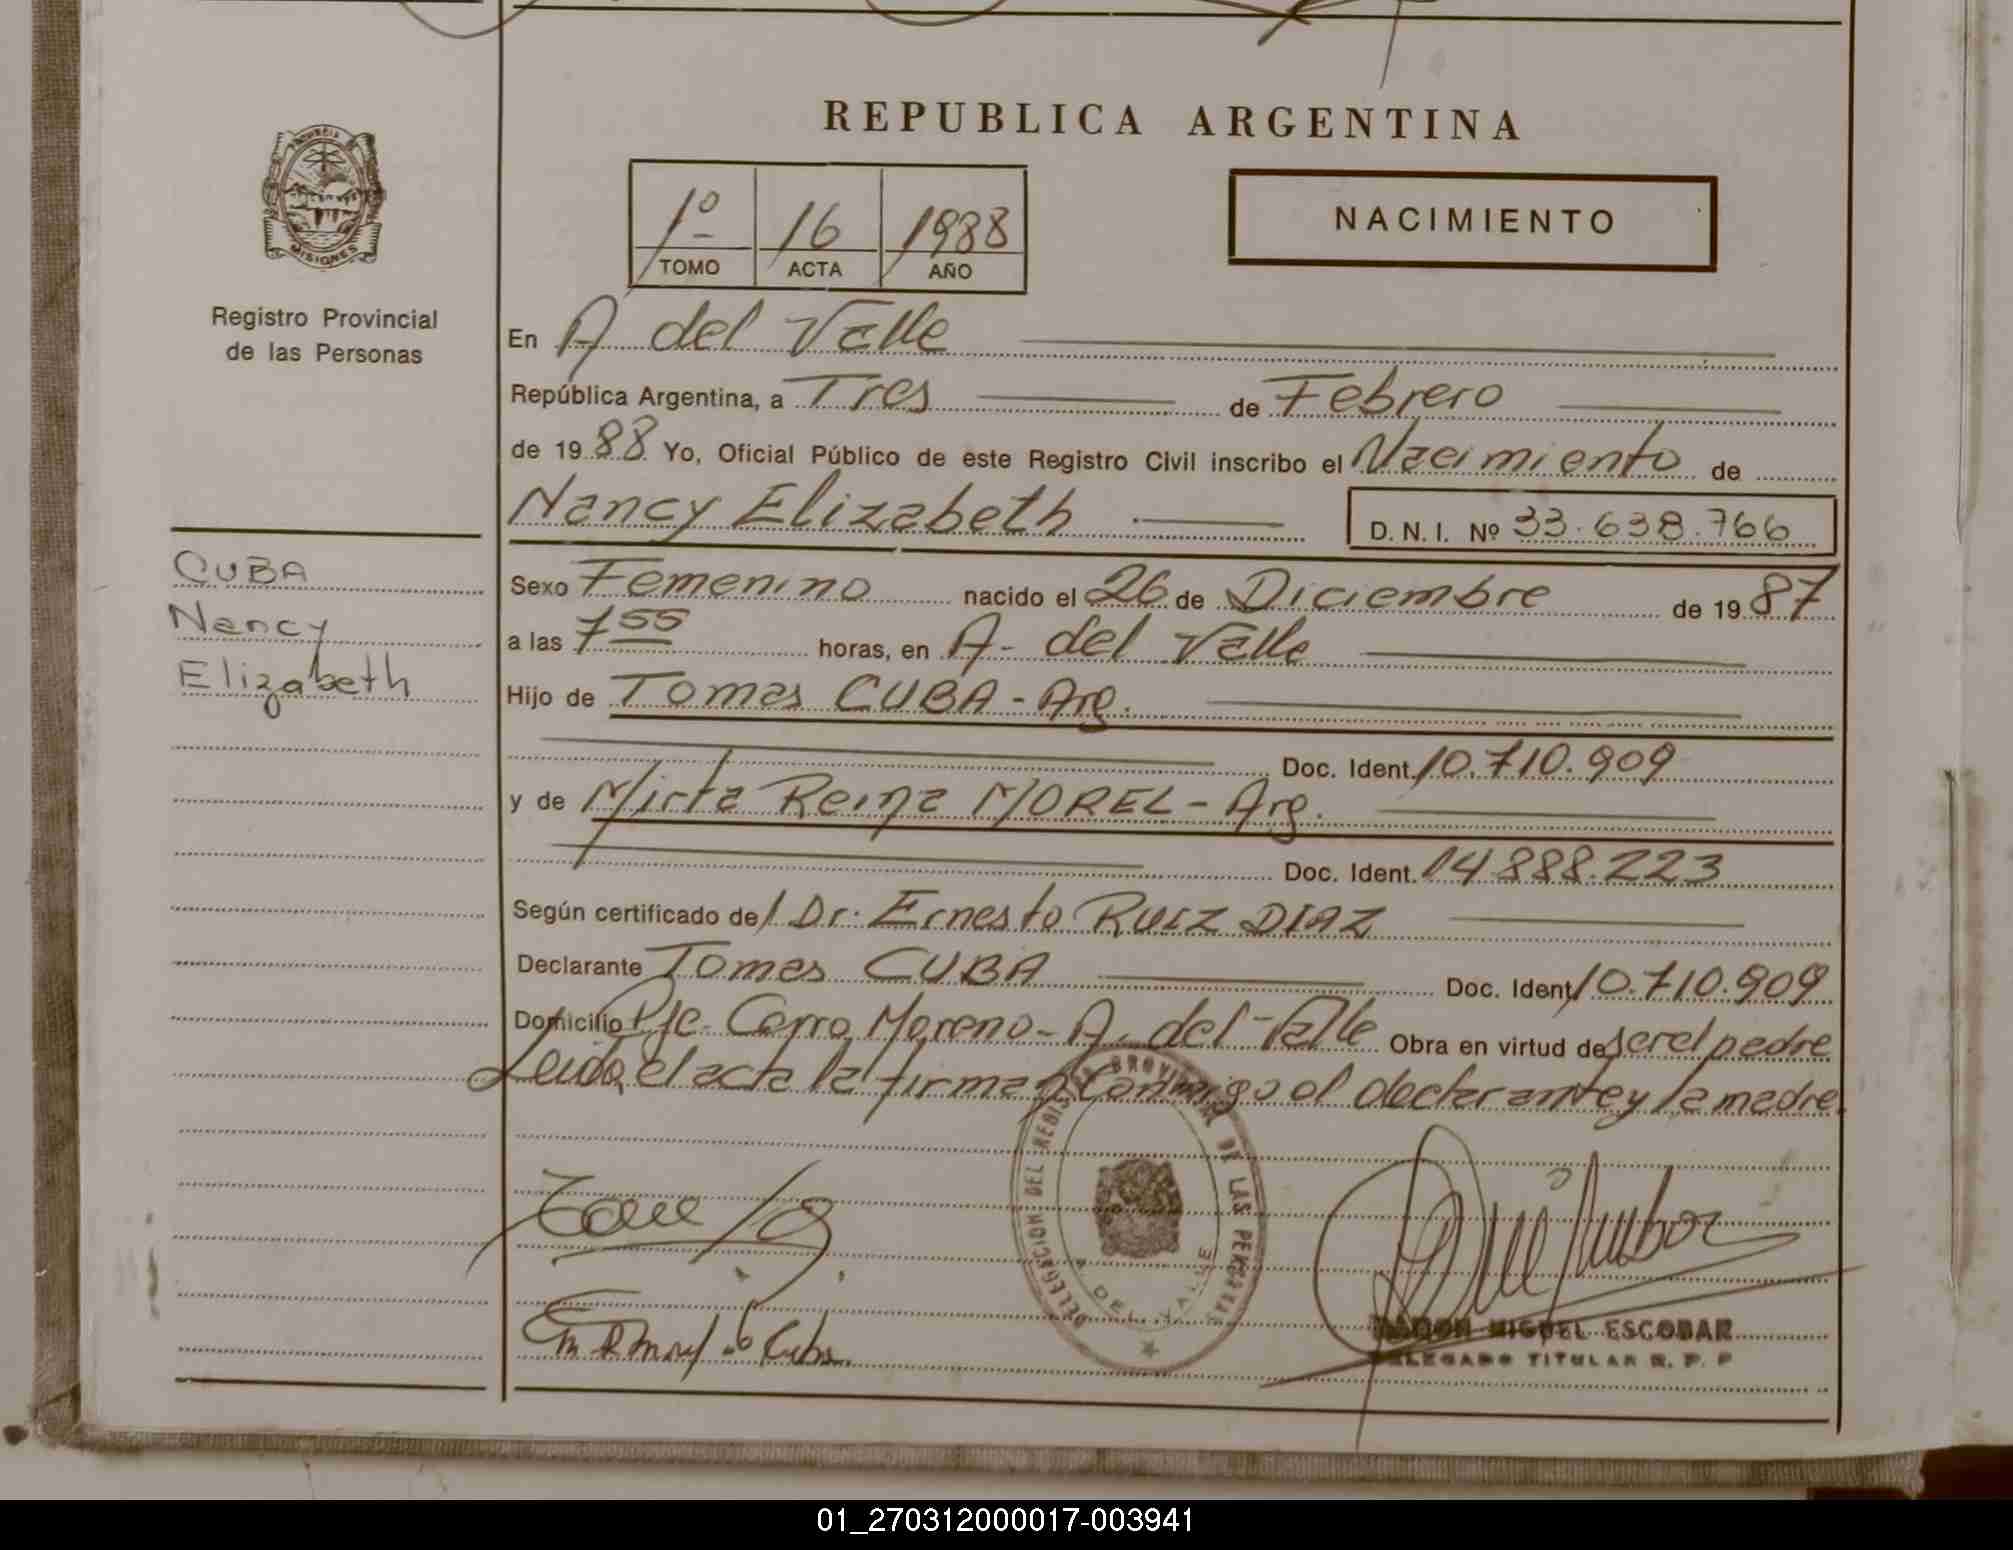 REPUBLICA ARGENTINA
PROVINCIA
MISIONES
Registro Provincial
de las Personas
1º 16 1988
TOMO ACTA AÑO
NACIMIENTO
En A del Valle
República Argentina, a Tres de Febrero
de 19 88 Yo, Oficial Público de este Registro Civil inscribo el Nacimiento de
Nancy Elizabeth D. N. I. Nº 33.638.766
CUBA
Nancy
Elizabeth
Sexo Femenino nacido el 26 de Diciembre de 19 87
a las 7 55 horas, en A- del Valle
Hijo de Tomas CUBA - Arg.
Doc. Ident. 10.710.909
y de Mirta Reina MOREL - Arg.
Doc. Ident. 14.888.223
Según certificado de/ Dr. Ernesto RUIZ DIAZ
Declarante Tomas CUBA Doc. Ident. 10.710.909
Domicilio Pje. Cerro Moreno - A. del Valle Obra en virtud de ser el padre
Leida el acta la firman conmigo el declarante y la madre.
DELEGACION DEL REGISTRO PROVINCIAL DE LAS PERSONAS
A. DEL VALLE
RAMON MIGUEL ESCOBAR
DELEGADO TITULAR R. P. P
01_270312000017-003941